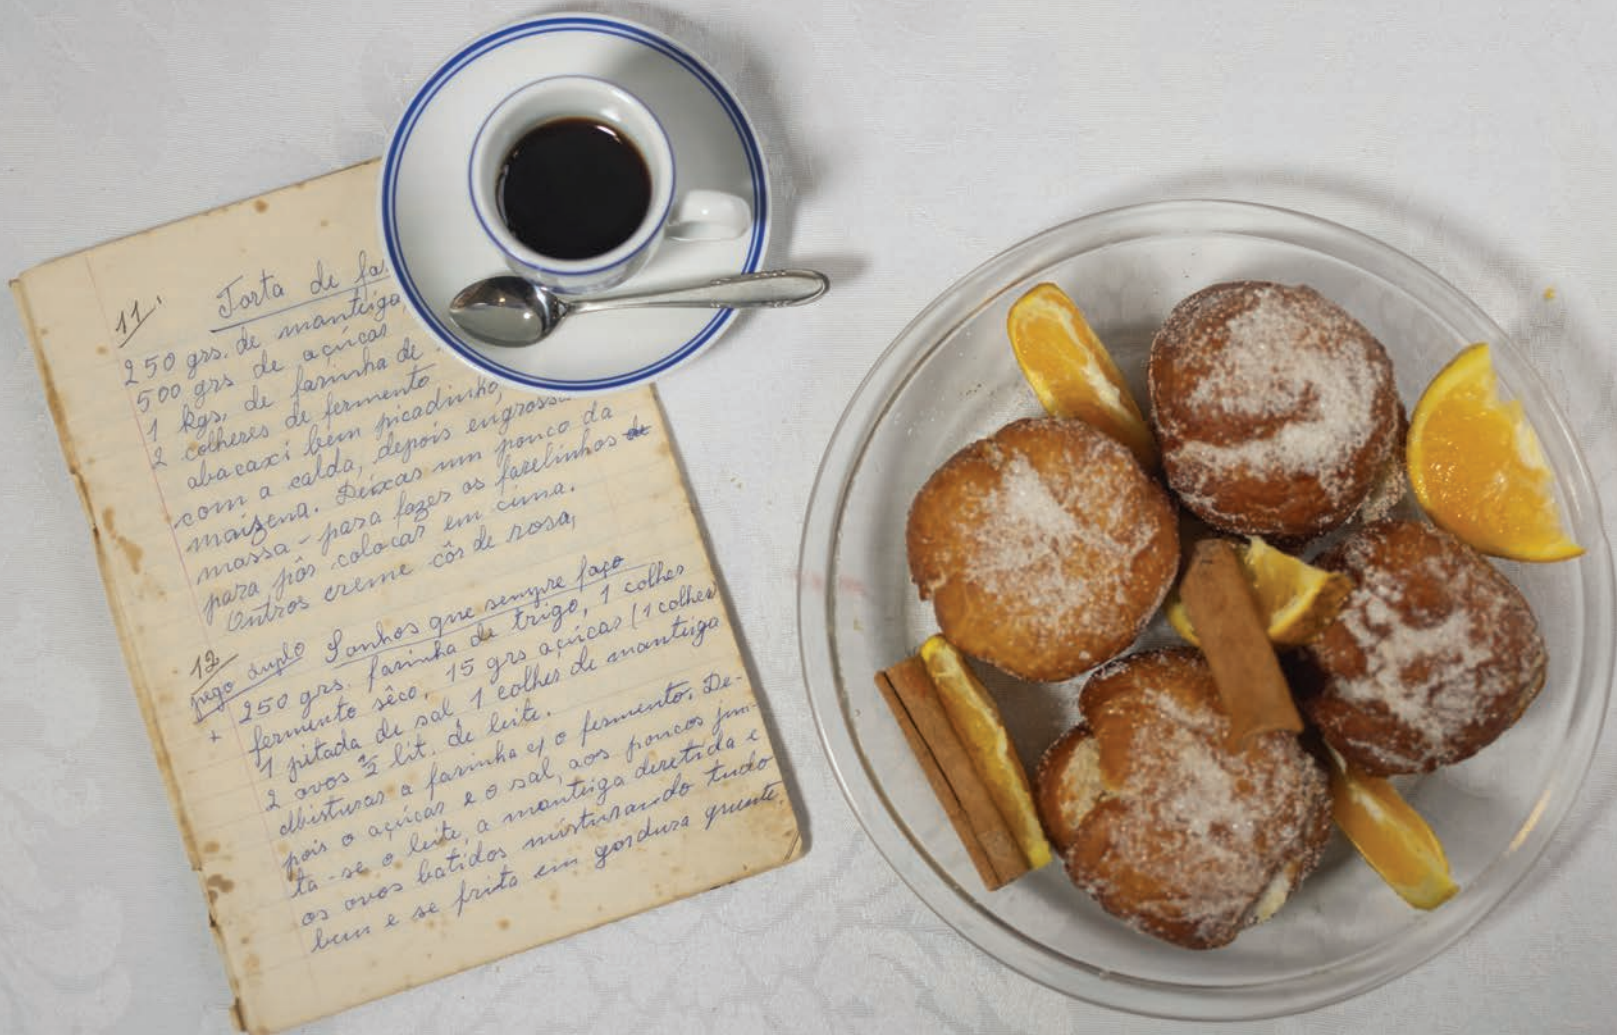 11. Torta de fa
250 grs. de manteiga
500 grs de açúcar
1 kgs. de farinha de
2 colheres de fermento
abacaxi bem picadinho,
com a calda, depois engrossa
maizena. Deixar um pouco da
massa - para fazer os farelinhos de
para pôr colocar em cima.
Outros creme côr de rosa,
12 Sonhos que sempre faço
duplo
250 grs. farinha de trigo, 1 colher
fermento sêco, 15 grs açúcar (1 colher
1 pitada de sal 1 colher de manteiga
2 ovos ½ lit. de leite.
Misturar a farinha c/ o fermento. De-
pois o açúcar e o sal, aos poucos jun-
ta-se o leite, a manteiga derretida e
os ovos batidos misturando tudo
bem e se frita em gordura quente.